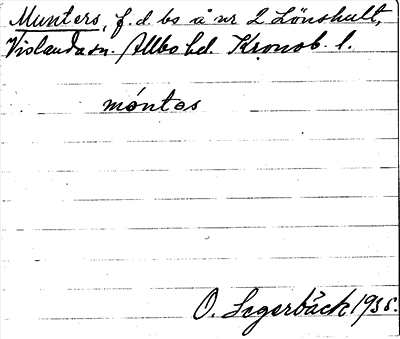 Munters, f. d. bs å nr 2 Lönshult,
Vislanda sn. Allbo hd. Kronob. l.
móntas
O. Lagerbäck 1935.